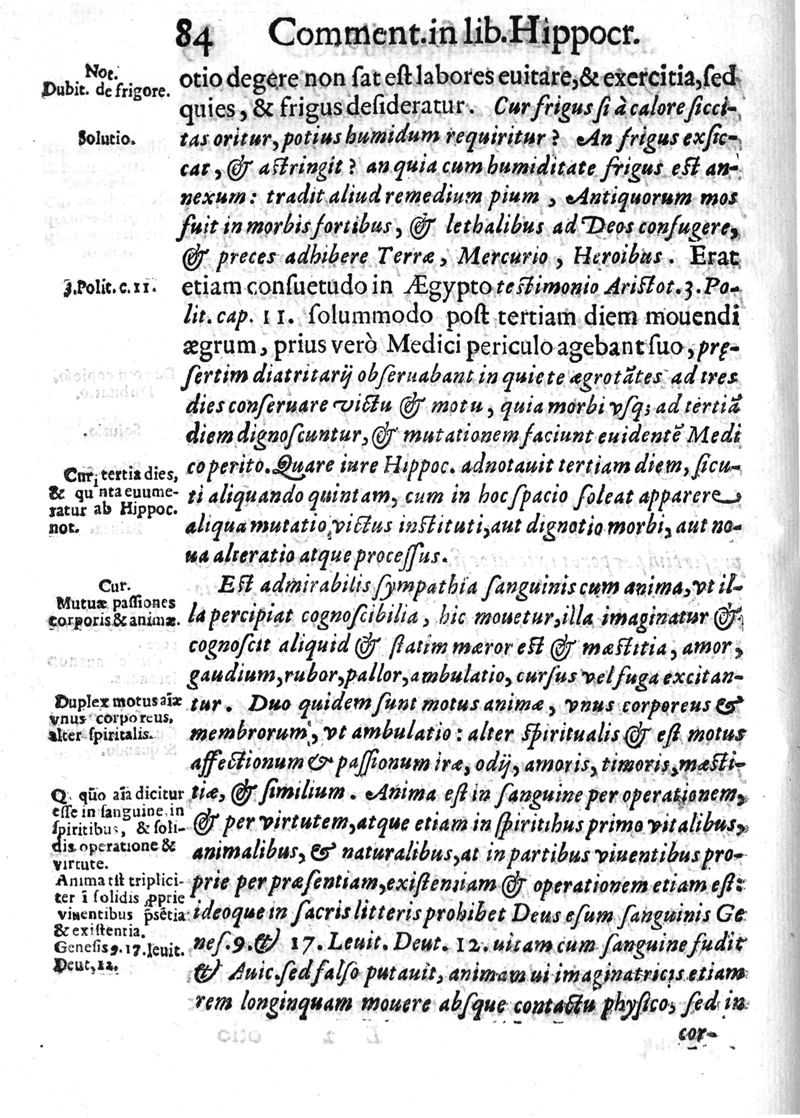 84 Comment. in lib. Hippocr.
Not.
Dubit. de frigore.
otio degere non sat est labores euitare, & exercitia, sed
quies, & frigus desideratur. Cur frigus si à calore sicci-
Solutio.
tas oritur, potius humidum requiritur? An frigus exsic-
cat, & astringit? an quia cum humiditate frigus est an-
nexum: tradit aliud remedium pium, Antiquorum mos
fuit in morbis fortibus, & lethalibus ad Deos confugere,
& preces adhibere Terræ, Mercurio, Heroibus. Erat
3. Polit. c. 11.
etiam consuetudo in Ægypto testimonio Aristot. 3. Po-
lit. cap. 11. solummodo post tertiam diem mouendi
ægrum, prius verò Medici periculo agebant suo, prę-
sertim diatritarij obseruabant in quiete ægrotātes ad tres
dies conseruare victu & motu, quia morbi vsq; ad tertiā
diem dignoscuntur, & mutationem faciunt euidentē Medi
co perito. Quare iure Hippoc. adnotauit tertiam diem, sicu-
Cur, tertia dies,
& quinta euume-
ratur ab Hippoc.
not.
ti aliquando quintam, cum in hoc spacio soleat apparere
aliqua mutatio, victus instituti, aut dignotio morbi, aut no-
ua alteratio atque processus.
Cur.
Mutuæ passiones
corporis & animæ.
Est admirabilis sympathia sanguinis cum anima, vt il-
la percipiat cognoscibilia, hic mouetur, illa imaginatur &
cognoscit aliquid & statim mæror est & mæstitia, amor,
gaudium, rubor, pallor, ambulatio, cursus vel fuga excitan-
Duplex motus aīæ
vnus corporeus,
alter spiritalis.
tur. Duo quidem sunt motus animæ, vnus corporeus &
membrorum, vt ambulatio: alter spiritualis & est motus
affectionum & passionum iræ, odij, amoris, timoris, mæsti-
Q. quō aīa dicitur
esse in sanguine, in
spiritibus, & soli-
dis operatione &
virtute.
tiæ, & similium. Anima est in sanguine per operationem,
& per virtutem, atque etiam in spiritibus primo vitalibus,
animalibus, & naturalibus, at in partibus viuentibus pro-
Anima est triplici-
ter ī solidis pprie
viuentibus psētia
& existentia.
prie per præsentiam, existentiam & operationem etiam est:
ideoque in sacris litteris prohibet Deus esum sanguinis Ge
Genesis 9. 17. leuit.
Deut, 12.
nes. 9. & 17. Leuit. Deut. 12. uitam cum sanguine fudit
& Auic. sed falso putauit, animam ui imaginatricis etiam
rem longinquam mouere absque contactu physico, sed in
cor-